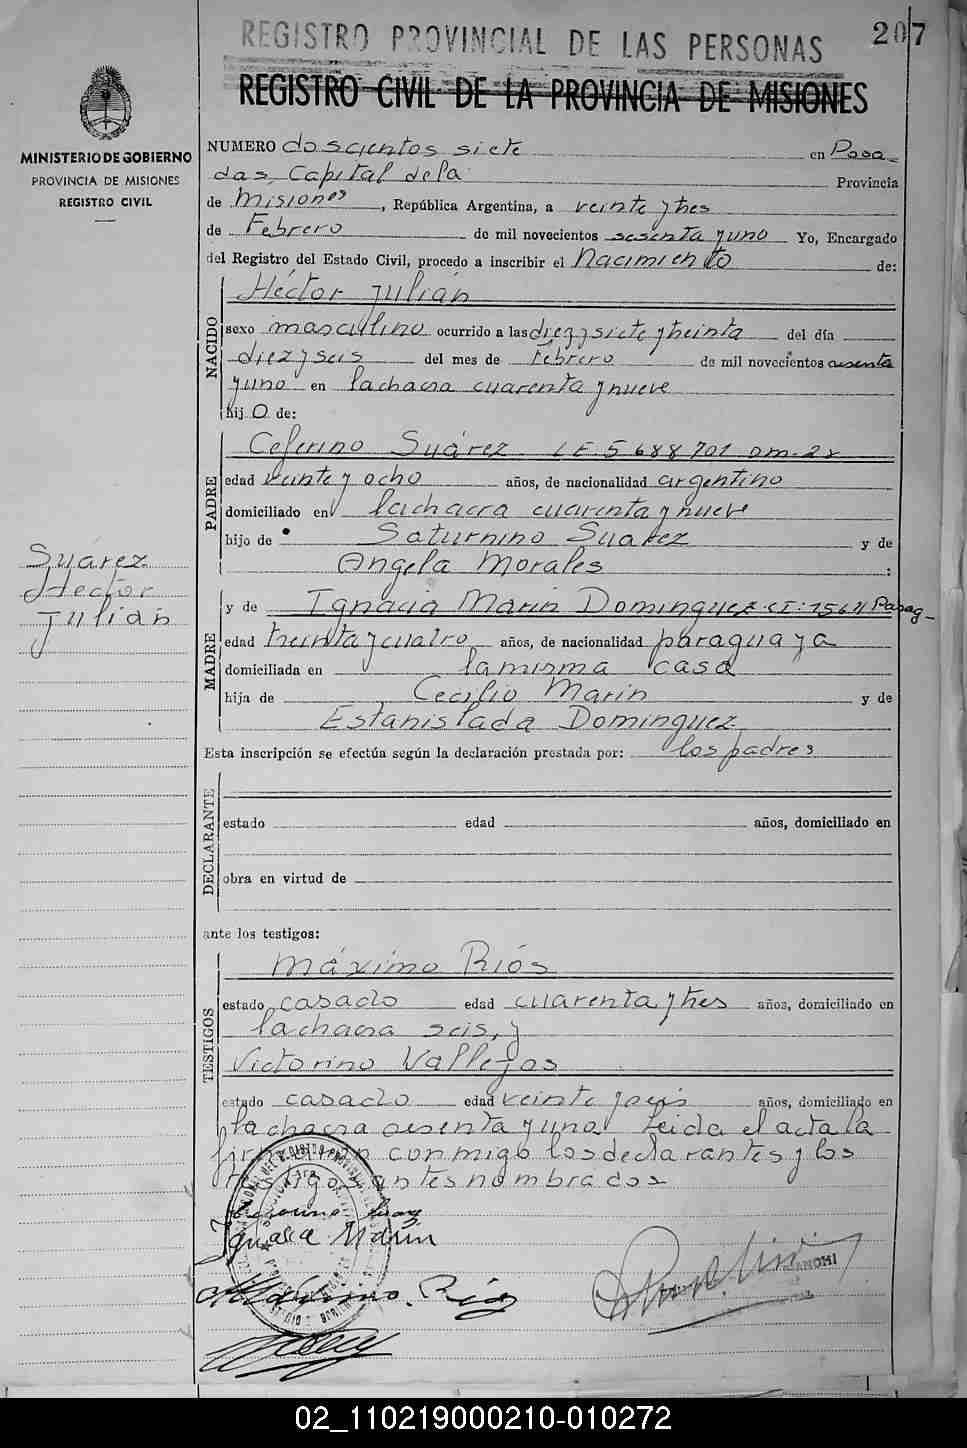 REGISTRO PROVINCIAL DE LAS PERSONAS
207
REGISTRO CIVIL DE LA PROVINCIA DE MISIONES
MINISTERIO DE GOBIERNO
PROVINCIA DE MISIONES
REGISTRO CIVIL
NUMERO doscientos siete en Posa-
das, Capital de la Provincia
de Misiones, República Argentina, a veinte y tres
de Febrero de mil novecientos sesenta y uno Yo, Encargado
del Registro del Estado Civil, procedo a inscribir el Nacimiento de:
NACIDO
Héctor Julián
sexo masculino ocurrido a las diez y siete y treinta del día
diez y seis del mes de Febrero de mil novecientos sesenta
y uno en la chacra cuarenta y nueve
hij o de:
PADRE
Ceferino Suárez LE. 5.688.701 DM. 28
edad veinte y ocho años, de nacionalidad argentino
domiciliado en la chacra cuarenta y nueve
hijo de Saturnino Suarez y de
Angela Morales :
Suárez
Hector
Julián
MADRE
y de Ignacia Marin Dominguez CI: 1564 Parag-
edad treinta y cuatro años, de nacionalidad paraguaya
domiciliada en la misma casa
hija de Cecilio Marin y de
Estanislada Dominguez
Esta inscripción se efectúa según la declaración prestada por: los padres
DECLARANTE
estado edad años, domiciliado en
obra en virtud de
ante los testigos:
TESTIGOS
Máximo Ríos
estado casado edad cuarenta y tres años, domiciliado en
la chacra seis, y
Victorino Vallejos
estado casado edad veinte y seis años, domiciliado en
la chacra sesenta y uno. Leida el acta la
firmaron conmigo los declarantes y los
testigos antes nombrados
Ignacia Marin
Maximo Rios
02_110219000210-010272